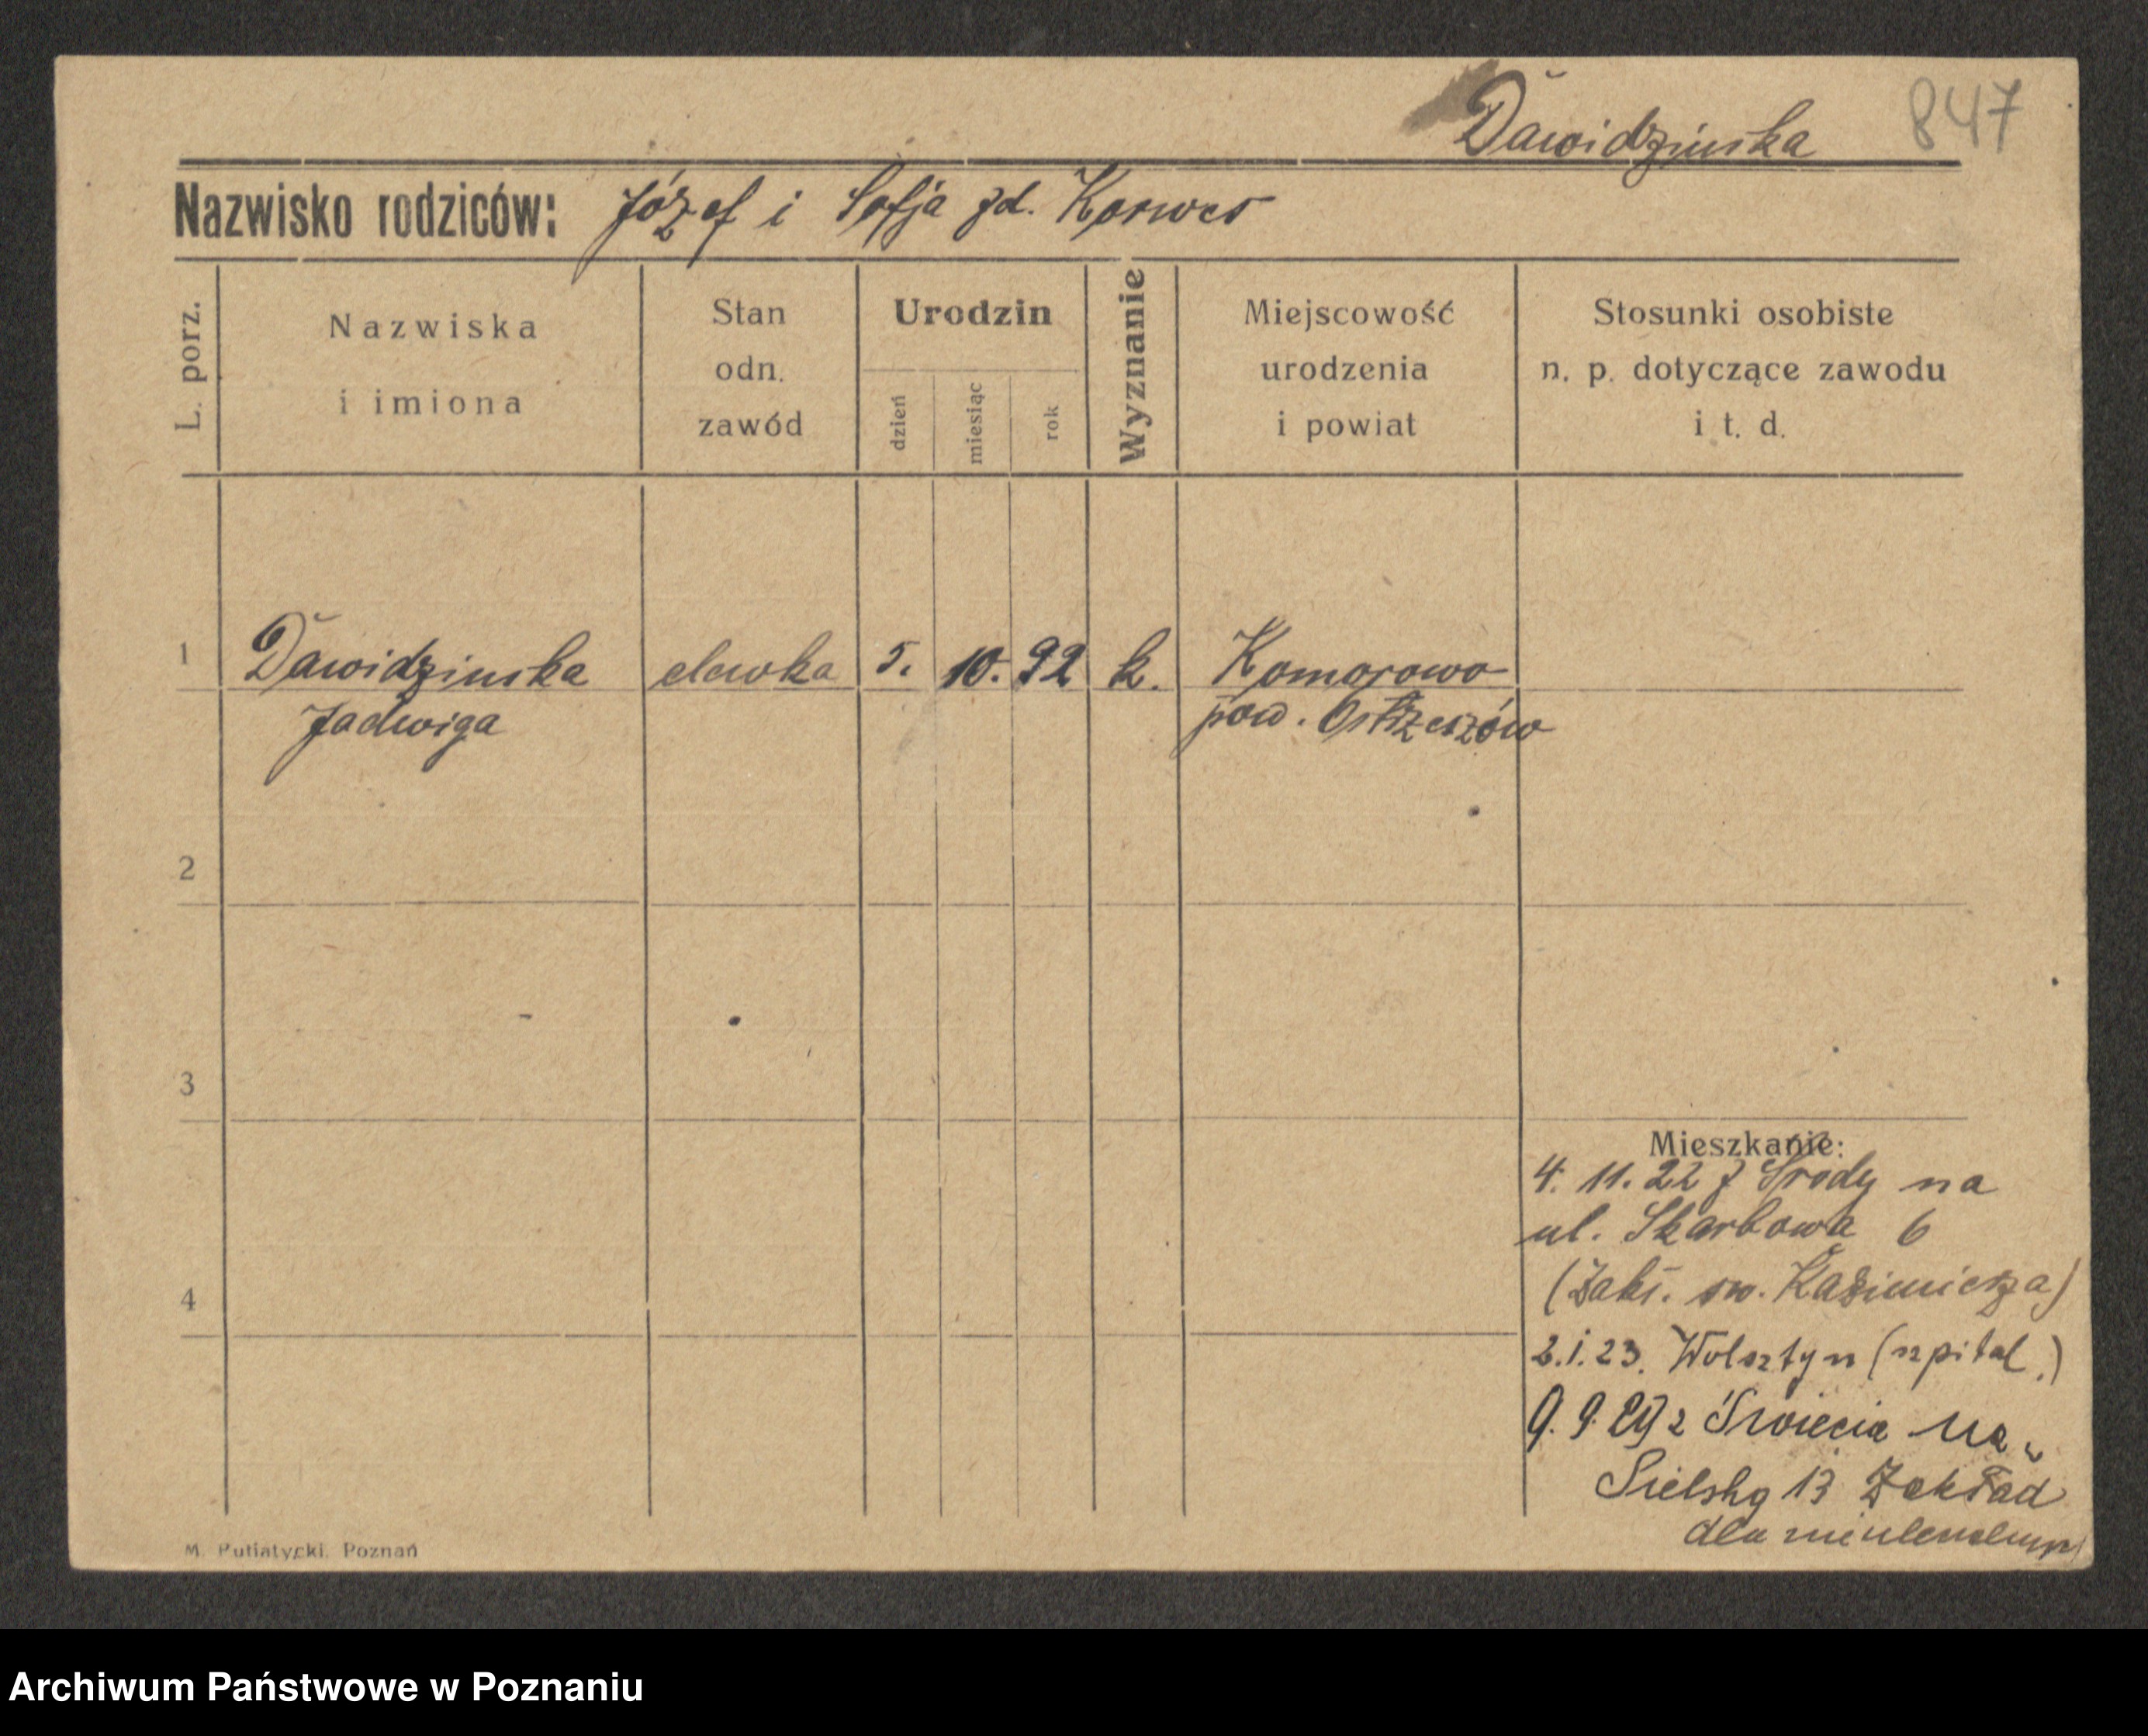 Dawidzinska 847
Nazwisko rodziców: Józef i Sofja zd.
L. porz.
Nazwiska
i imiona
Stan
odn.
zawód
Urodzin
dzień
miesiąc
rok
Wyznanie
Miejscowość
urodzenia
i powiat
Stosunki osobiste
n. p. dotyczące zawodu
i t. d.
1 Dawidzinska elewka 5. 10. 92 k. Komorowo
Jadwiga pow. Ostrzeszów
2
3
Mieszkanie:
4. 11. 22 z Środy na
ul. Skarbowa 6
(Zakł. św. Kazimierza)
4
2.1.23. Wolsztyn (szpital.)
9. 9. 29 z Świecia na
Sielską 13 Zakład
dla
M. Putiatycki, Poznań
Archiwum Państwowe w Poznaniu